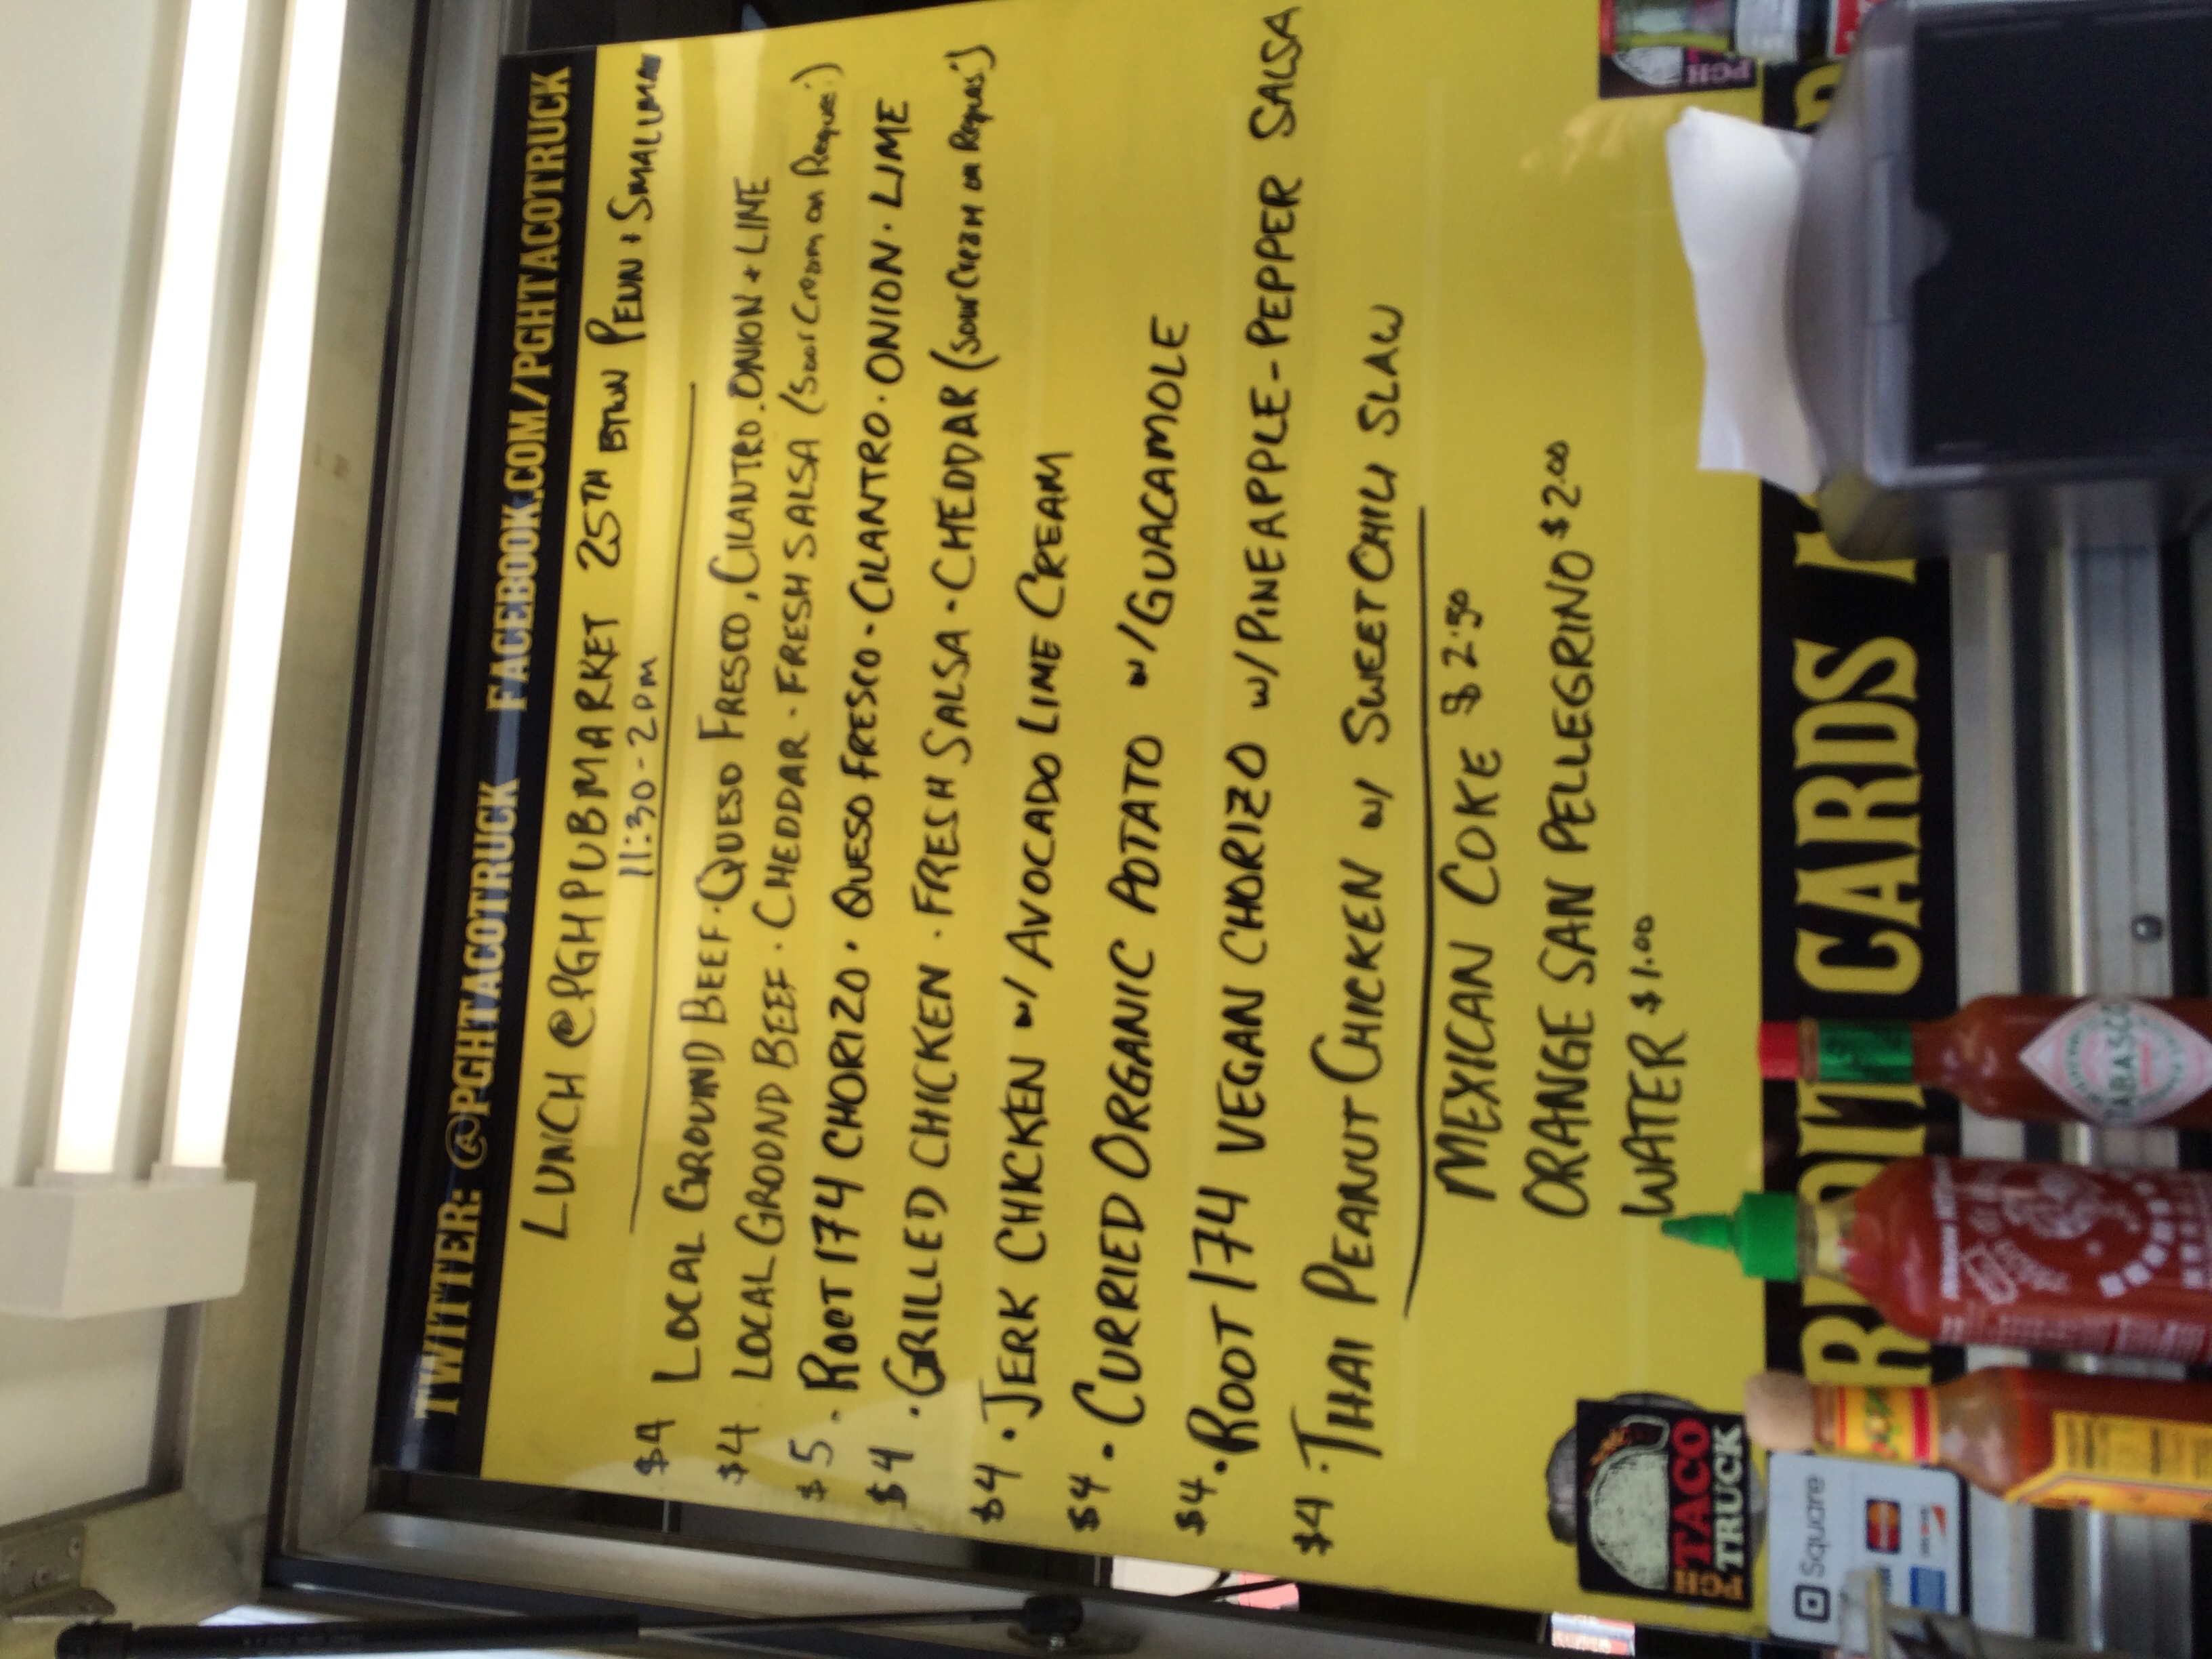 TWITTER: @PGHTACOTRUCK FACEBOOK.COM/PGHTACOTRUCK
LUNCH @PGHPUBMARKET 25TH BTWN PENN + SMALLMAN
11:30-2PM
$4 LOCAL GROUND BEEF·QUESO FRESCO, CILANTRO.ONION + LIME
$4 LOCAL GROUND BEEF · CHEDDAR · FRESH SALSA (Sour Cream on Request)
$5 · ROOT 174 CHORIZO · QUESO FRESCO · CILANTRO · ONION · LIME
$4 · GRILLED CHICKEN · FRESH SALSA · CHEDDAR (Sour Cream on Request)
$4 · JERK CHICKEN w/ AVOCADO LIME CREAM
$4 · CURRIED ORGANIC POTATO w/GUACAMOLE
$4 · ROOT 174 VEGAN CHORIZO w/PINEAPPLE-PEPPER SALSA
$4 · THAI PEANUT CHICKEN w/ SWEET CHILI SLAW
MEXICAN COKE $2.50
ORANGE SAN PELLEGRINO $2.00
WATER $1.00
PGH
TACO
TRUCK
PGH
CARDS
Square
TABASCO